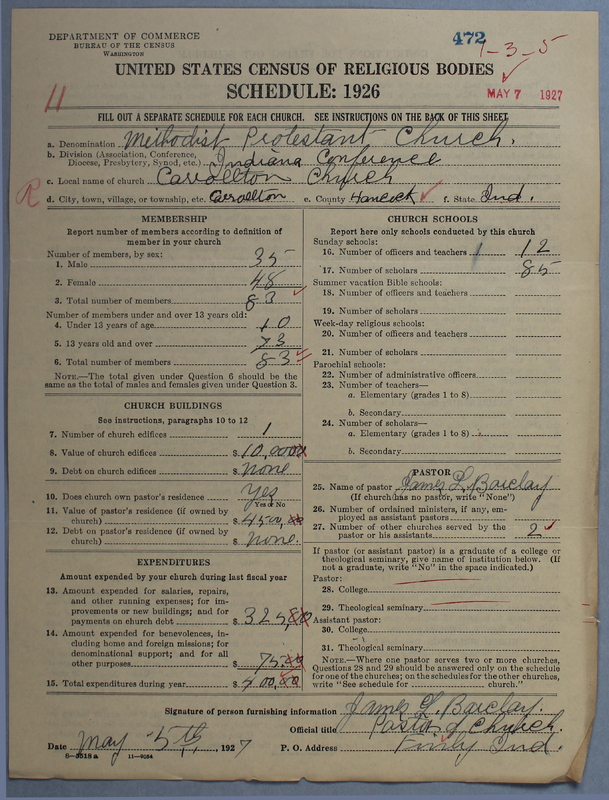 DEPARTMENT OF COMMERCE
BUREAU OF THE CENSUS
WASHINGTON
472
1-3-5
UNITED STATES CENSUS OF RELIGIOUS BODIES
SCHEDULE: 1926
MAY 7 1927
11
FILL OUT A SEPARATE SCHEDULE FOR EACH CHURCH. SEE INSTRUCTIONS ON THE BACK OF THIS SHEET
a. Denomination Methodist Protestant Church.
b. Division (Association, Conference,
Diocese, Presbytery, Synod, etc.) Indiana Conference
c. Local name of church Carrollton Church
R
d. City, town, village, or township, etc. Carrollton e. County Hancock f. State Ind.
MEMBERSHIP
Report number of members according to definition of
member in your church
Number of members, by sex:
1. Male 35
2. Female 48
3. Total number of members 83
Number of members under and over 13 years old:
4. Under 13 years of age 10
5. 13 years old and over 73
6. Total number of members 83
NOTE.—The total given under Question 6 should be the
same as the total of males and females given under Question 3.
CHURCH BUILDINGS
See instructions, paragraphs 10 to 12
7. Number of church edifices 1
8. Value of church edifices $ 10,000
9. Debt on church edifices $ none
10. Does church own pastor's residence Yes
Yes or No
11. Value of pastor's residence (if owned by
church) $ 4500,00
12. Debt on pastor's residence (if owned by
church) $ None.
EXPENDITURES
Amount expended by your church during last fiscal year
13. Amount expended for salaries, repairs,
and other running expenses; for im-
provements or new buildings; and for
payments on church debt $ 325,00
14. Amount expended for benevolences, in-
cluding home and foreign missions; for
denominational support; and for all
other purposes $ 75,00
15. Total expenditures during year $ 400,00
CHURCH SCHOOLS
Report here only schools conducted by this church
Sunday schools:
16. Number of officers and teachers 12
17. Number of scholars 85
Summer vacation Bible schools:
18. Number of officers and teachers
19. Number of scholars
Week-day religious schools:
20. Number of officers and teachers
21. Number of scholars
Parochial schools:
22. Number of administrative officers
23. Number of teachers—
a. Elementary (grades 1 to 8)
b. Secondary
24. Number of scholars—
a. Elementary (grades 1 to 8)
b. Secondary
PASTOR
25. Name of pastor James L. Barclay
(If church has no pastor, write "None")
26. Number of ordained ministers, if any, em-
ployed as assistant pastors
27. Number of other churches served by the
pastor or his assistants 2
If pastor (or assistant pastor) is a graduate of a college or
theological seminary, give name of institution below. (If
not a graduate, write "No" in the space indicated.)
Pastor:
28. College
29. Theological seminary
Assistant pastor:
30. College
31. Theological seminary
NOTE.—Where one pastor serves two or more churches,
Questions 28 and 29 should be answered only on the schedule
for one of the churches; on the schedules for the other churches,
write "See schedule for church."
Signature of person furnishing information James L. Barclay.
Official title Pastor of Church.
Date May 5th, 1927 P. O. Address Finly Ind.
8-3518a 11-9054